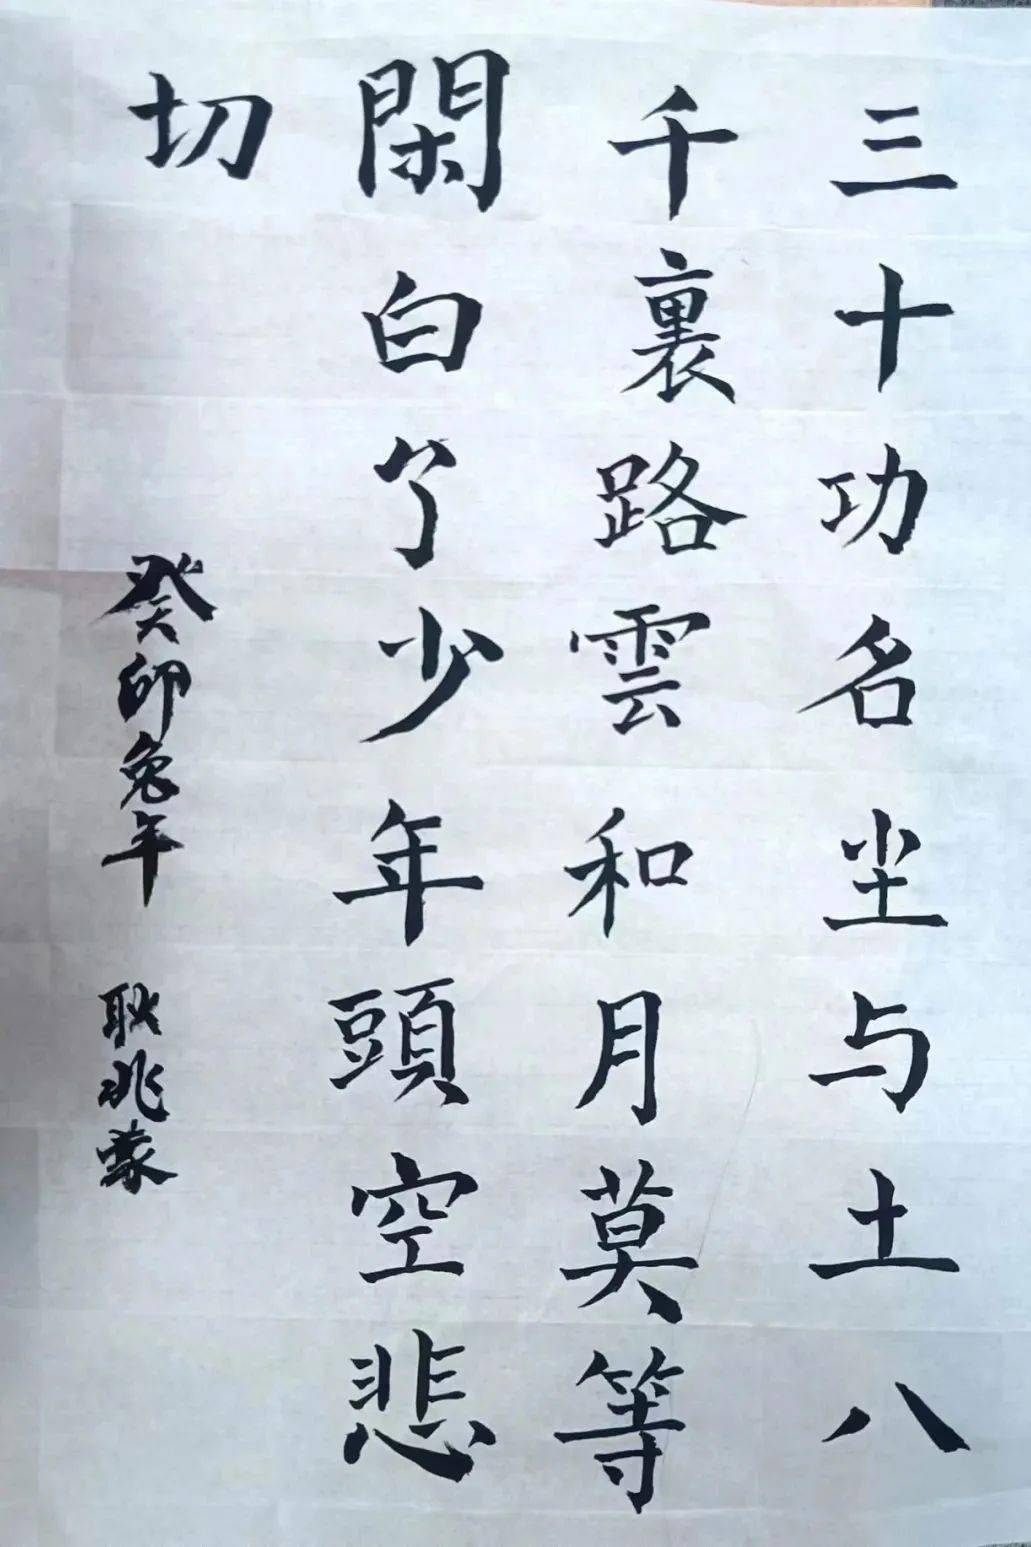 三十功名尘与土八
千裏路雲和月莫等
閑白了少年頭空悲
切
癸卯兔年 耿兆蒙